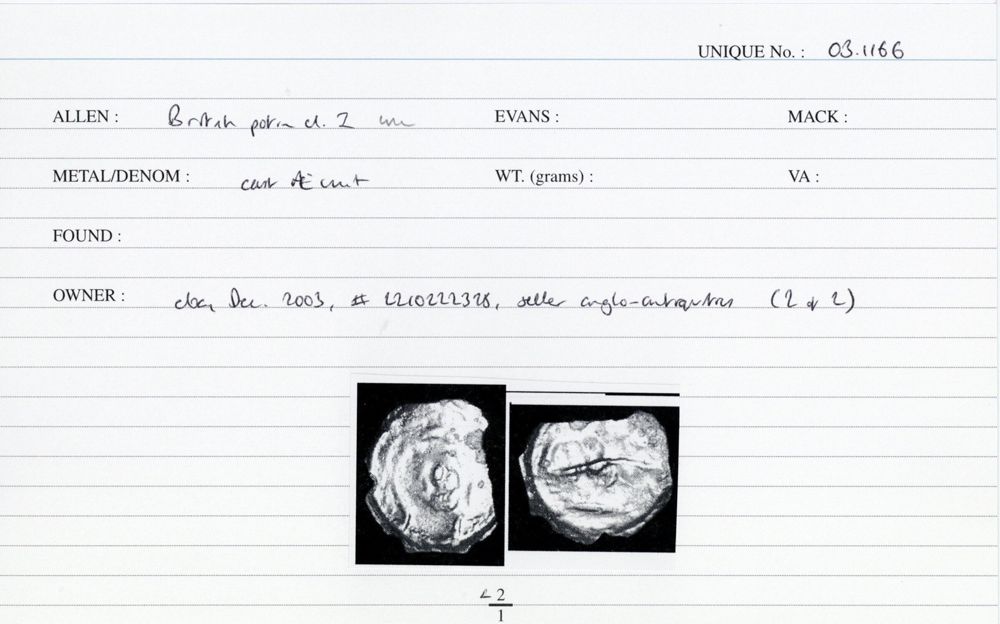 UNIQUE No. : 03.1166
ALLEN : British potin cl. 2 EVANS : MACK :
METAL/DENOM : cast Æ unit WT. (grams) : VA :
FOUND :
OWNER : ebay Dec. 2003, # seller anglo-antiquities (2 of 2)
2
1